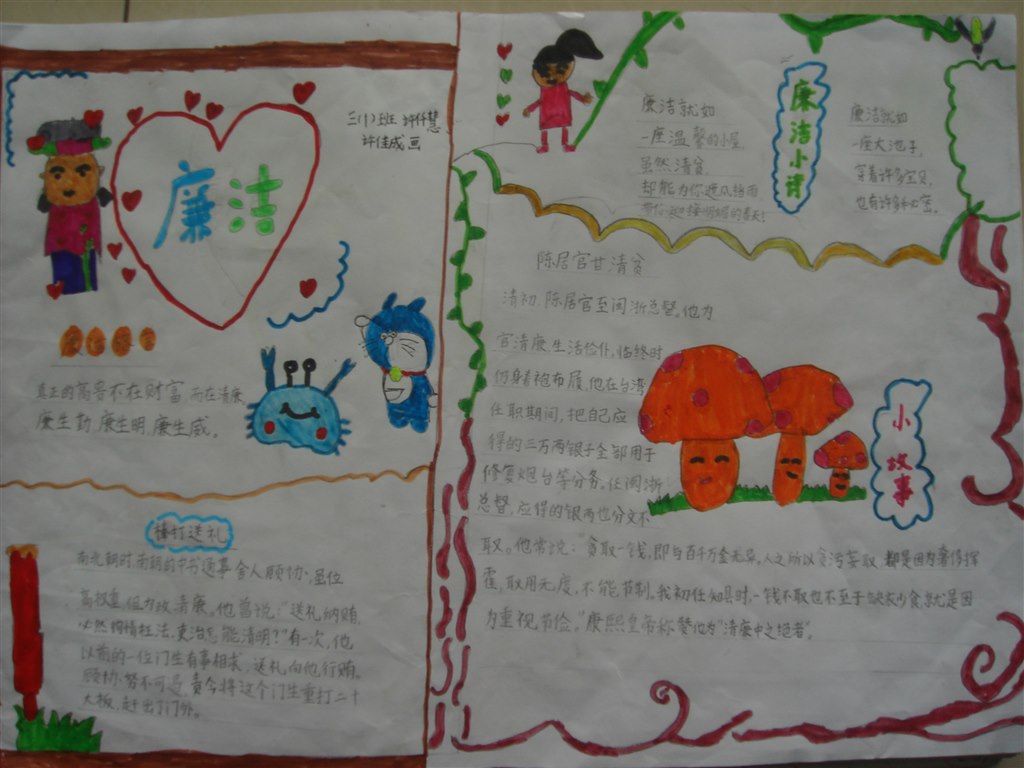 三(1)班 许仟慧
许佳成 画
廉洁
真正的高贵不在财富,而在清廉,
廉生勤,廉生明,廉生威。
棒打送礼
南北朝时,南朝的中书通事舍人顾协,虽位
高权重,但为政清廉。他曾说:"送礼纳贿,
必然徇情枉法,吏治怎能清明?"有一次,他
以前的一位门生有事相求,送礼向他行贿,
顾协怒不可遏,责令将这个门生重打二十
大板,赶出了门外。
廉洁小诗
廉洁就如
一座温馨的小屋
虽然清贫,
却能为你遮风挡雨
廉洁就如
一座大池子,
穿着许多宝贝,
也有许多
陈居官甘清贫
清初,陈居官至闽浙总督,他为
官清廉,生活俭仆,临终时
仍身着袍布履,他在台湾
任职期间,把自己应
得的三万两银子全部用于
修复炮台等公务。任闽浙
总督,应得的银两也分文不
取。他常说:"贪取一钱,即与百千万金无异,人之所以贪污妄取,都是因为奢侈挥
霍,取用无度,不能节制。我初任知县时,一钱不取也不至于缺衣少食,就是因
为重视节俭。"康熙皇帝称赞他为"清廉中之绝者"。
小故事